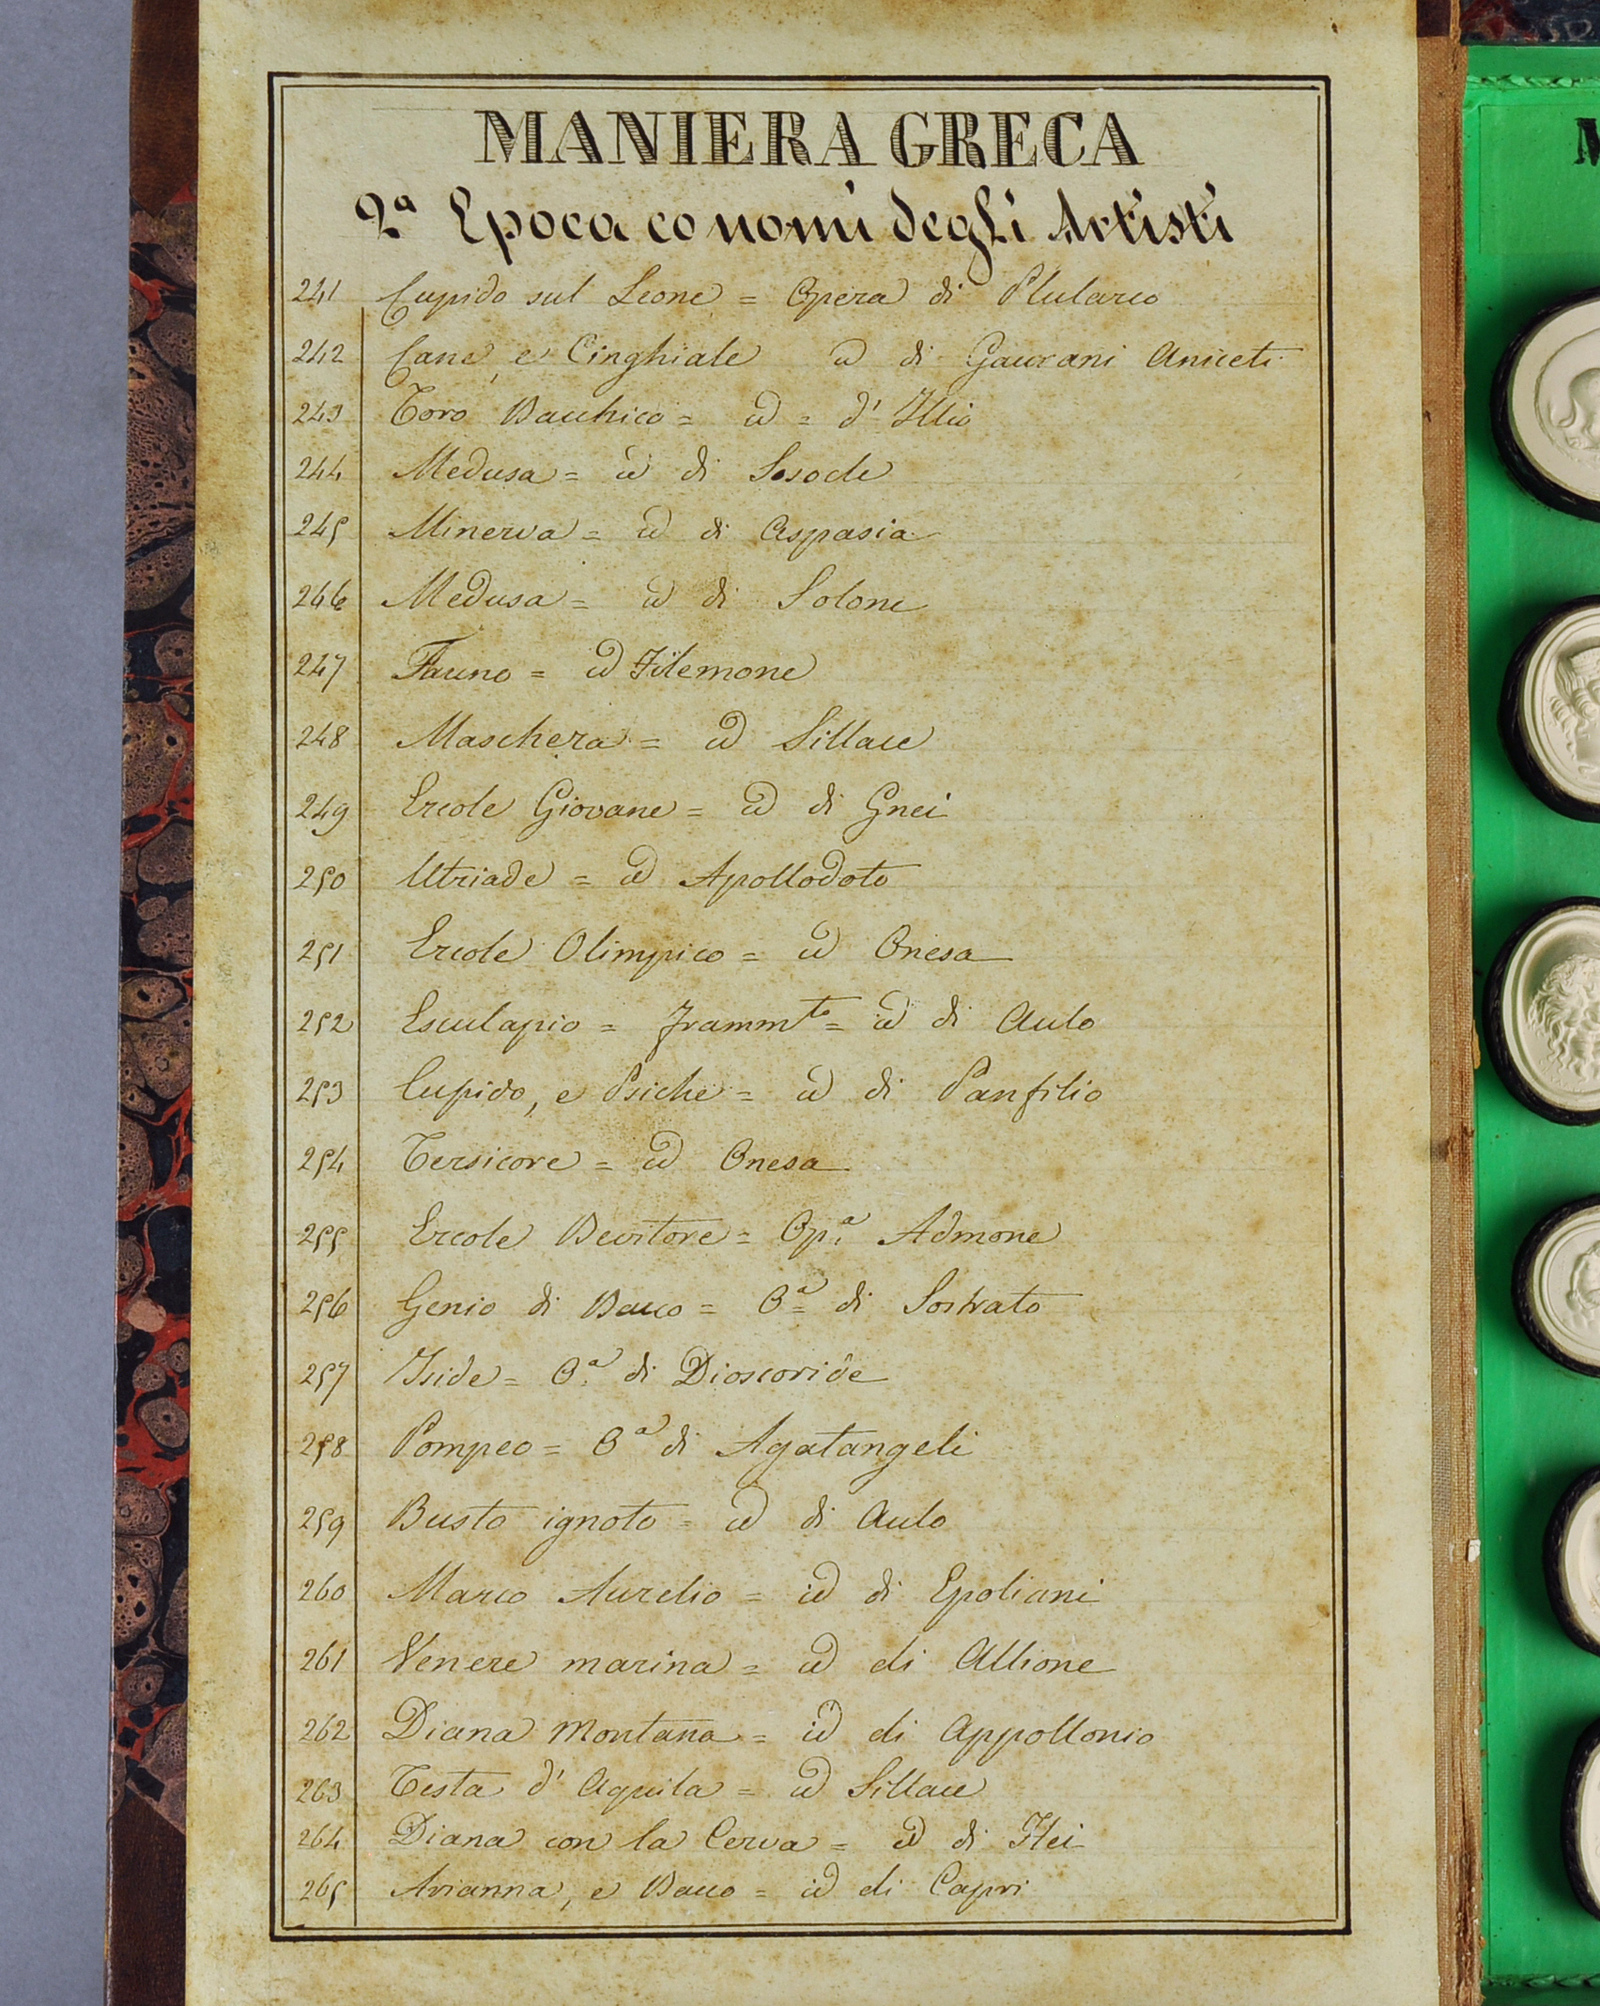 MANIERA GRECA
2ª Epoca co nomi degli Artisti
241 Cupido sul Leone = Opera di Plutarco
242 Cane, e Cinghiale id di Gaurani Aniceti
243 Toro Bacchico = id = d' Illio
244 Medusa = id di Sosocle
245 Minerva = id di Aspasia
246 Medusa = id di Solone
247 Fauno = id Filemone
248 Maschera = id Sillace
249 Ercole Giovane = id di Gnei
250 Otriade = id Apollodoto
251 Ercole Olimpico = id Onesa
252 Esculapio = Framm.to = id di Aulo
253 Cupido, e Psiche = id di Panfilio
254 Tersicore = id Onesa
255 Ercole Bevitore = Op.ª Admone
256 Genio di Bacco = O.ª di Sostrato
257 Iside = O.ª di Dioscoride
258 Pompeo = Oª di Agatangeli
259 Busto ignoto = id di Aulo
260 Marco Aurelio = id di Epoliani
261 Venere marina = id di Allione
262 Diana Montana = id di Appollonio
263 Testa d' Aquila = id Sillace
264 Diana con la Cerva = id diilei
265 Arianna, e Bacco = id di Capri
M